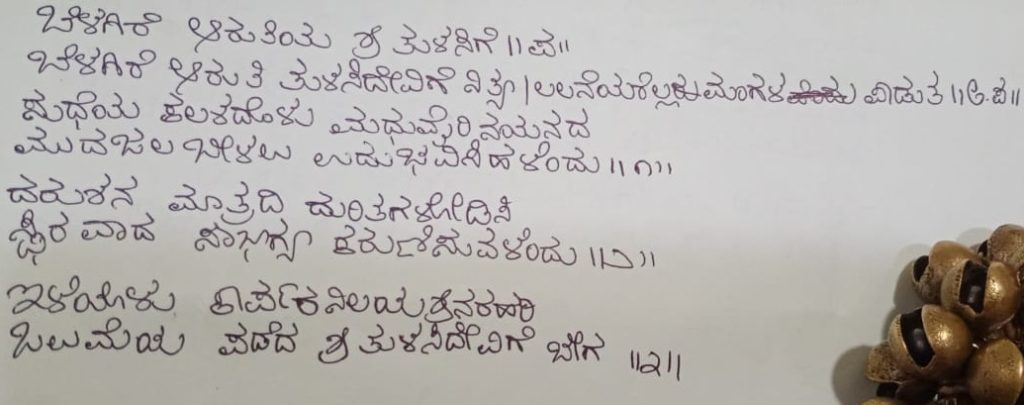 ಬೆಳಗಿರೆ ಆರುತಿಯ ಶ್ರೀ ತುಳಸಿಗೆ ||ಪ||
ಬೆಳಗಿರೆ ಆರುತಿ ತುಳಸಿದೇವಿಗೆ ನಿತ್ಯ | ಲಲನೆಯರೆಲ್ಲರು ಮಂಗಳ ಪಾಡುತ ||ಅ.ಪ||
ಸುಧೆಯ ಕಲಶದೊಳು ಮಧುವೈರಿ ನಯನದ
ಮುದಜಲ ಬೀಳಲು ಉದುಭವಿಸಿಹಳೆಂದು ||೧||
ದರುಶನ ಮಾತ್ರದಿ ದುರಿತಗಳೋಡಿಸಿ
ಸ್ಥಿರವಾದ ಸೌಭಾಗ್ಯ ಕರುಣಿಸುವಳೆಂದು ||೨||
ಇಳೆಯೊಳು ಕಾರ್ಪರ ನಿಲಯ ಶ್ರೀನರಹರಿ
ಒಲುಮೆಯ ಪಡೆದ ಶ್ರೀ ತುಳಸಿದೇವಿಗೆ ಬೇಗ ||೩||